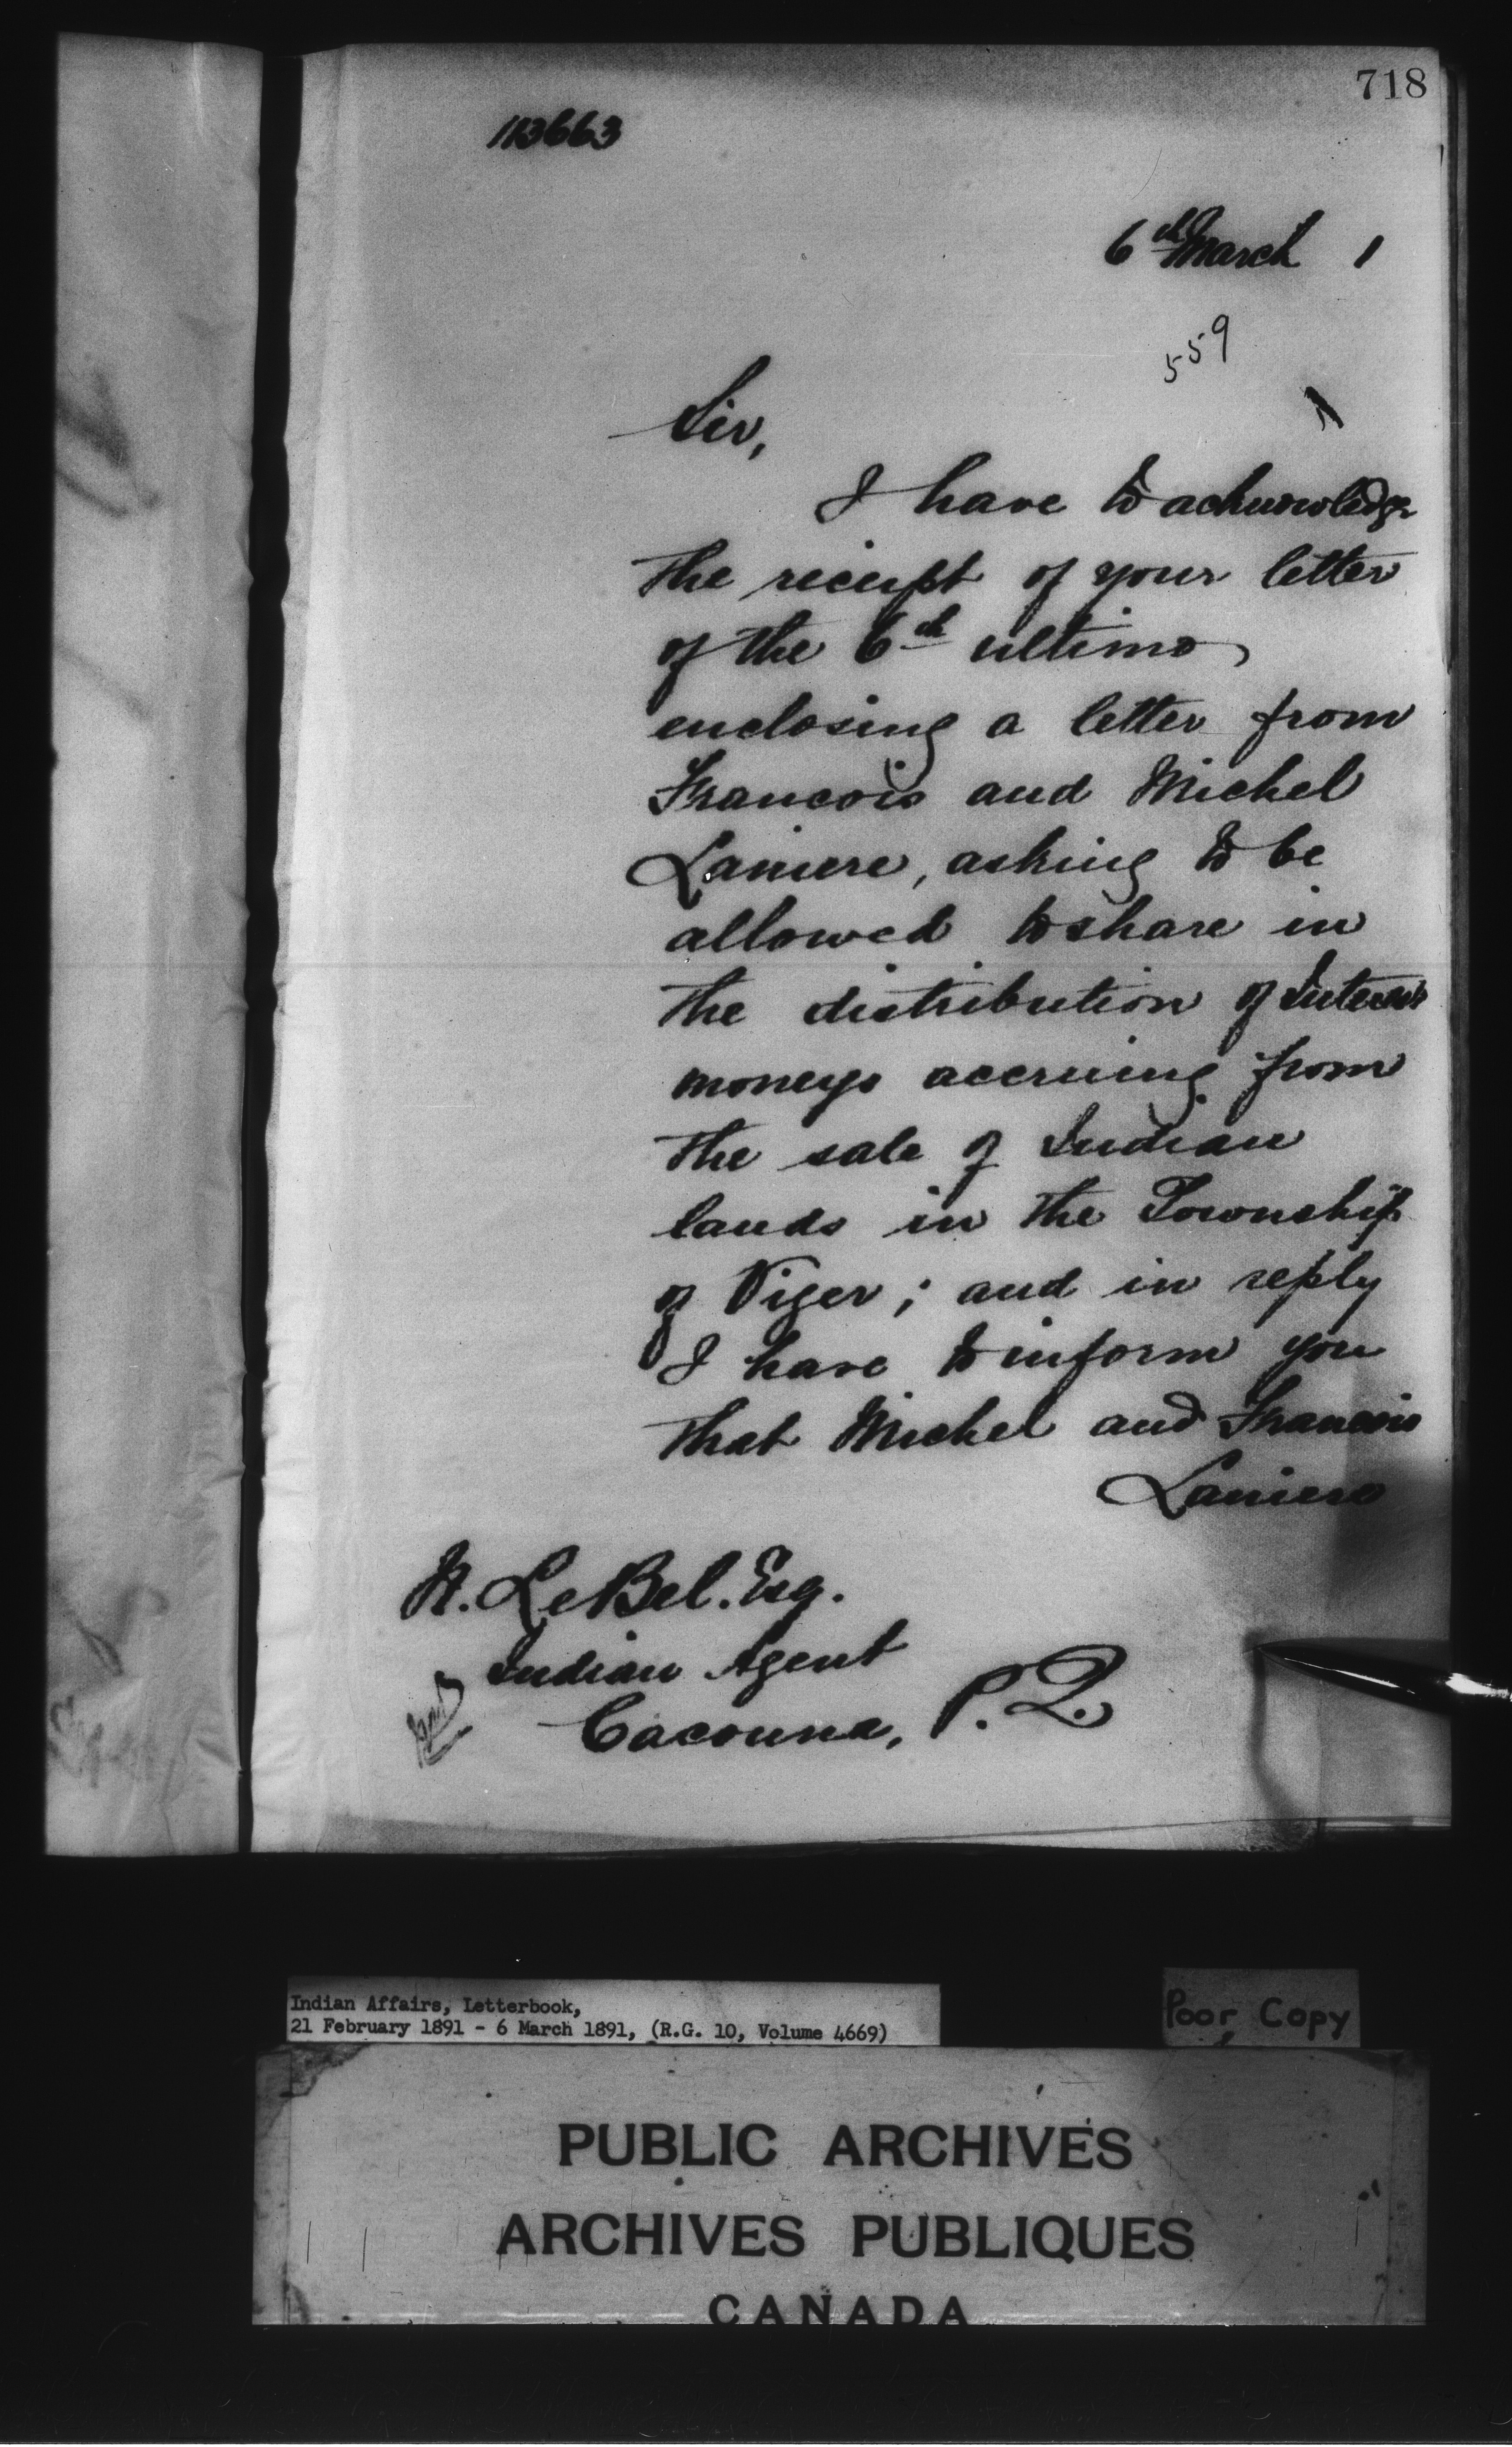 718
113663
6th March 1
559
Sir,
I have to acknowledge
the receipt of your letter
of the 6th ultimo,
enclosing a letter from
Francois and Michel
Laniere, asking to be
allowed to share in
the distribution of Interest
moneys accruing from
the sale of Indian
lands in the Township
of Viger; and in reply
I have to inform you
that Michel and Francois
Laniere
N. LeBel. Esq.
Indian Agent
Cacouna, P.Q.
Indian Affairs, Letterbook,
21 February 1891 - 6 March 1891, (R.G. 10, Volume 4669)
Poor Copy
PUBLIC ARCHIVES
ARCHIVES PUBLIQUES
CANADA